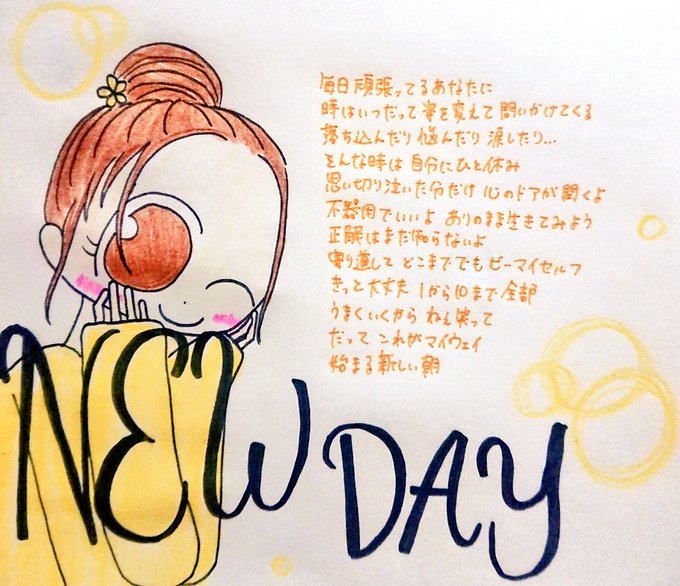 毎日頑張ってるあなたに
時はいつだって姿を変えて問いかけてくる
落ち込んだり悩んだり涙したり...
そんな時は自分にひと休み
思い切り泣いた分だけ心のドアが開くよ
不器用でいいよ ありのまま生きてみよう
正解はまだ知らないよ
寄り道して どこまででもビーマイセルフ
きっと大丈夫 1から10まで全部
うまくいくから ねぇ笑って
だって これがマイウェイ
始まる新しい朝
NEW DAY